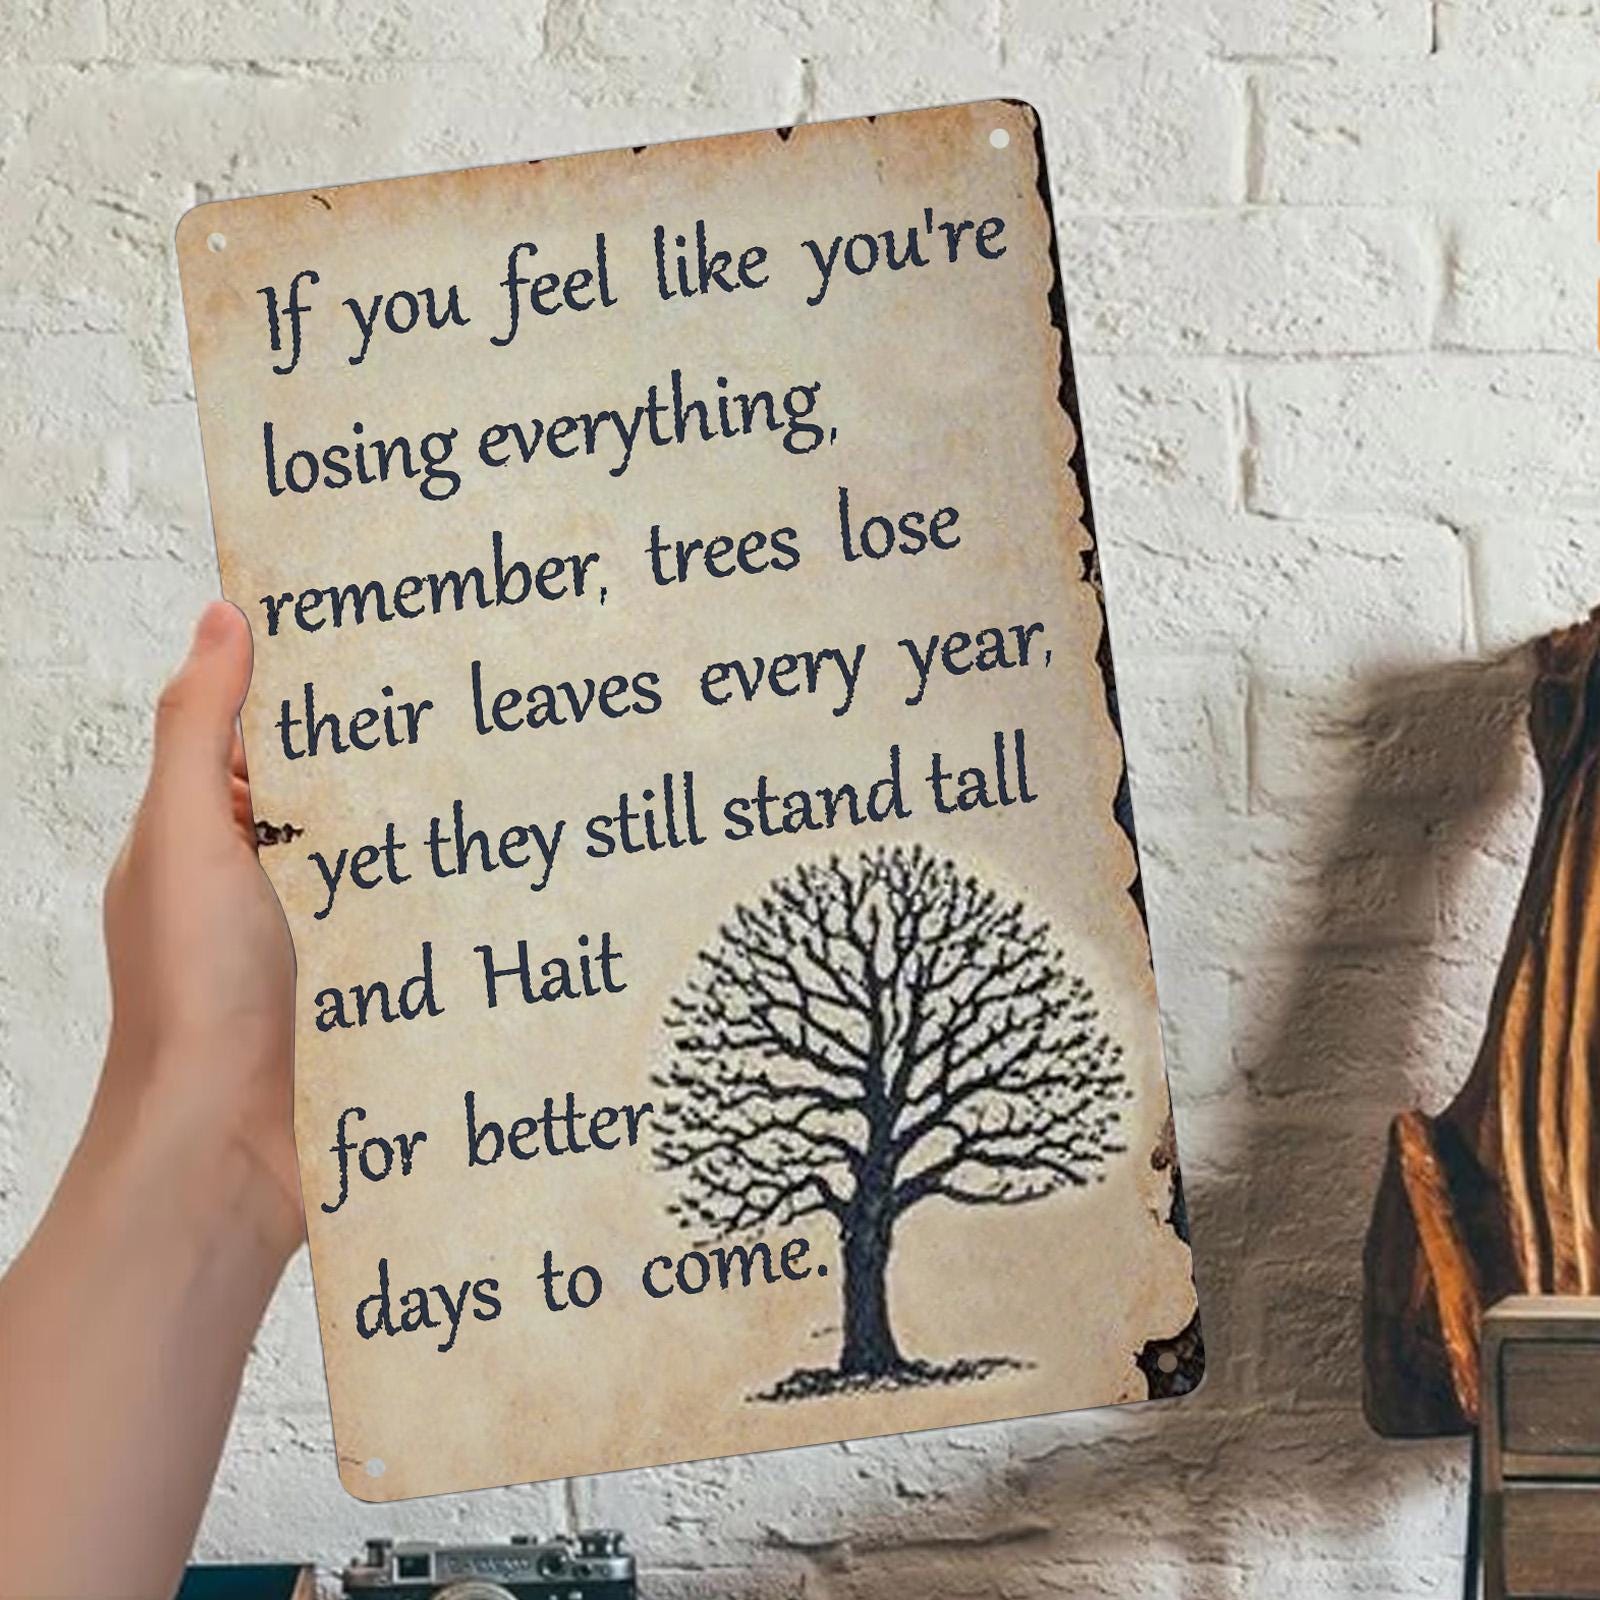 If you feel like you're
losing everything,
remember, trees lose
their leaves every year,
yet they still stand tall
and Hait
for better
days to come.